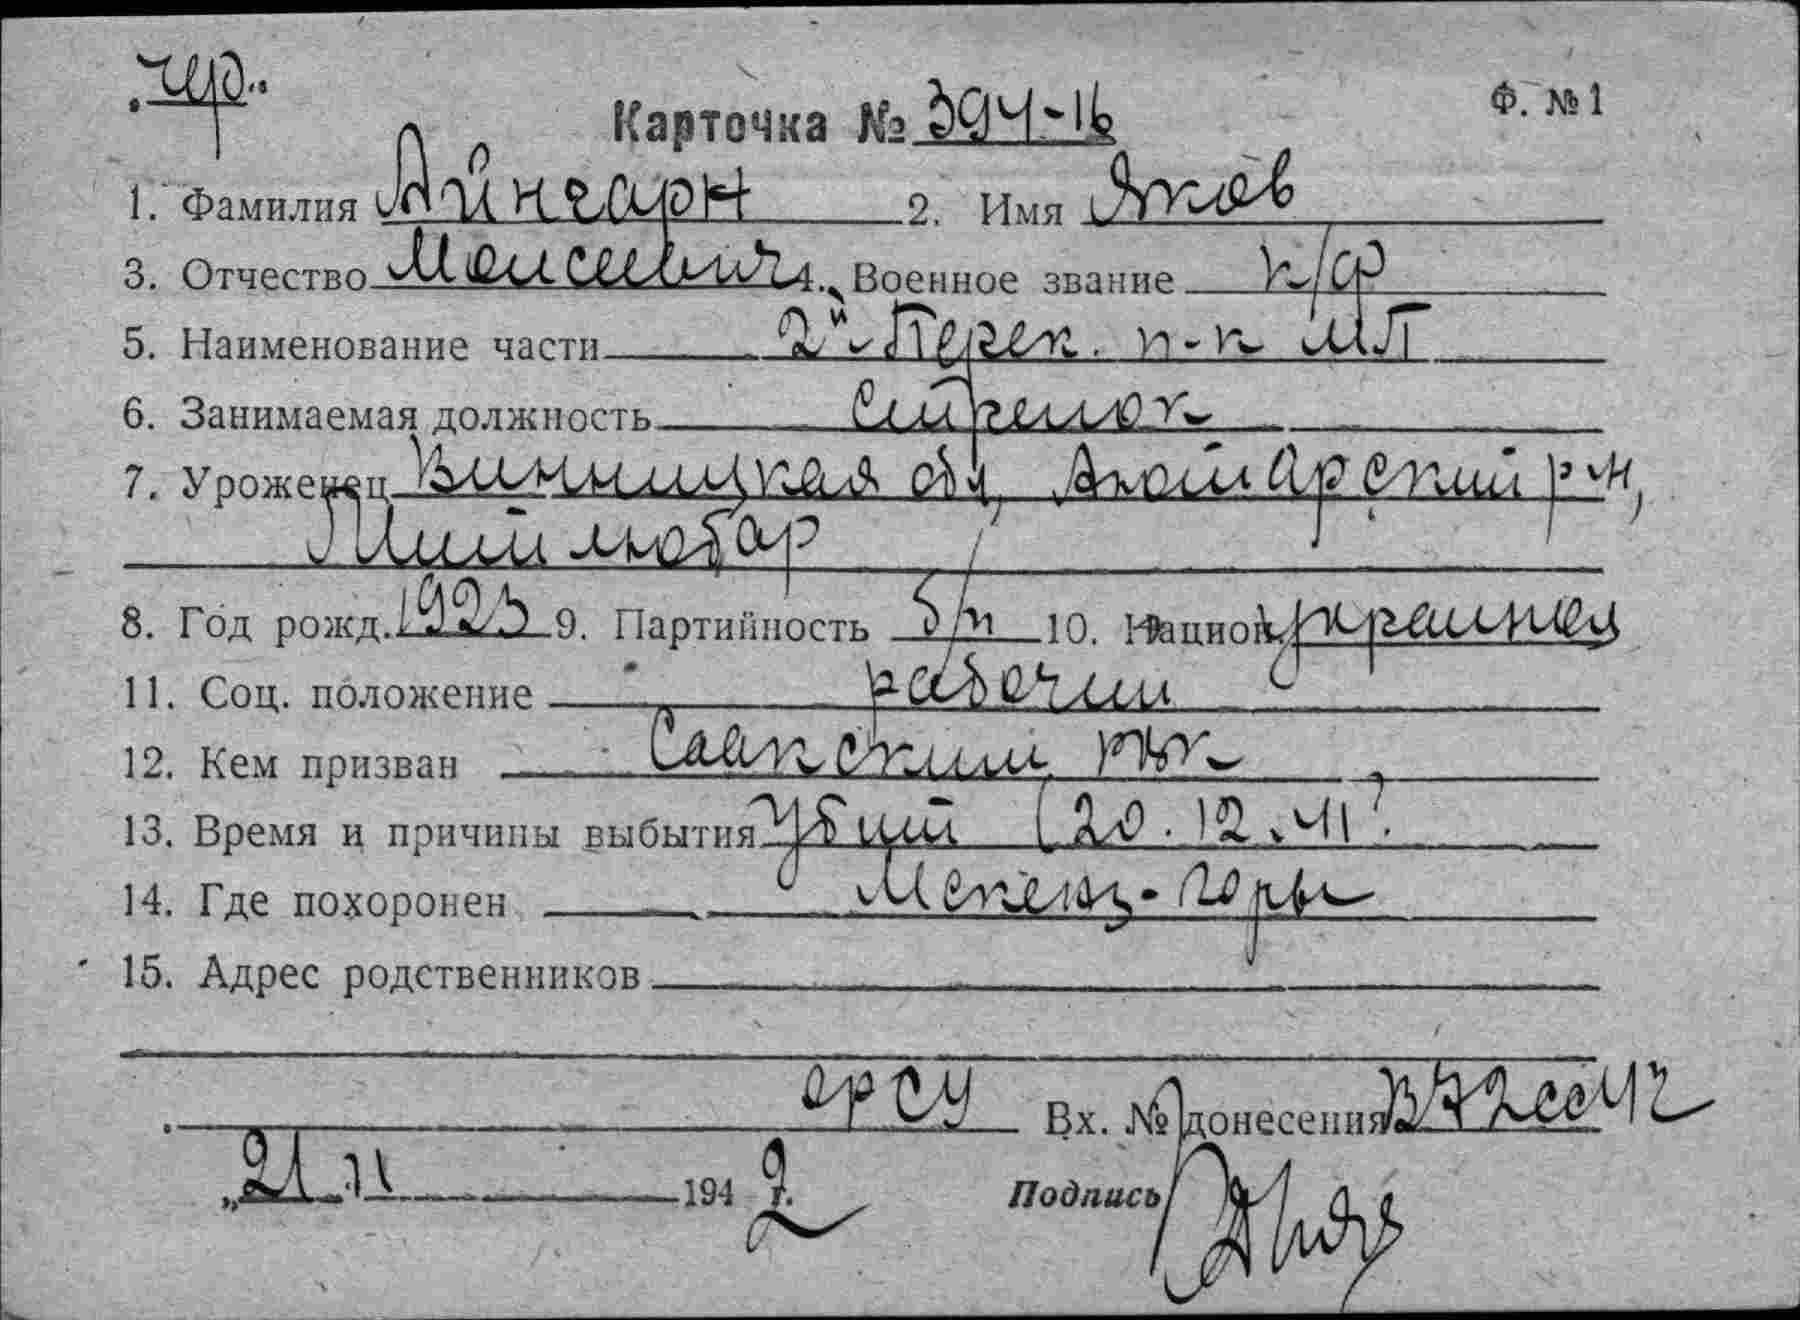 чер.
Ф. № 1
Карточка № 394-16
1. Фамилия Айнгарн 2. Имя Яков
3. Отчество Моисеевич 4. Военное звание к/ф
5. Наименование части 2й-Перек. п-к МП
6. Занимаемая должность Стрелок
7. Уроженец Винницкая обл,
8. Год рожд. 1923 9. Партийность б/п 10. Национ.
11. Соц. положение рабочий
12. Кем призван Сакский РВК
13. Время и причины выбытия Убит (20.12.41?
14. Где похоронен Мекенз-горы
15. Адрес родственников
Вх. № донесения
„21.11 1942
Подпись